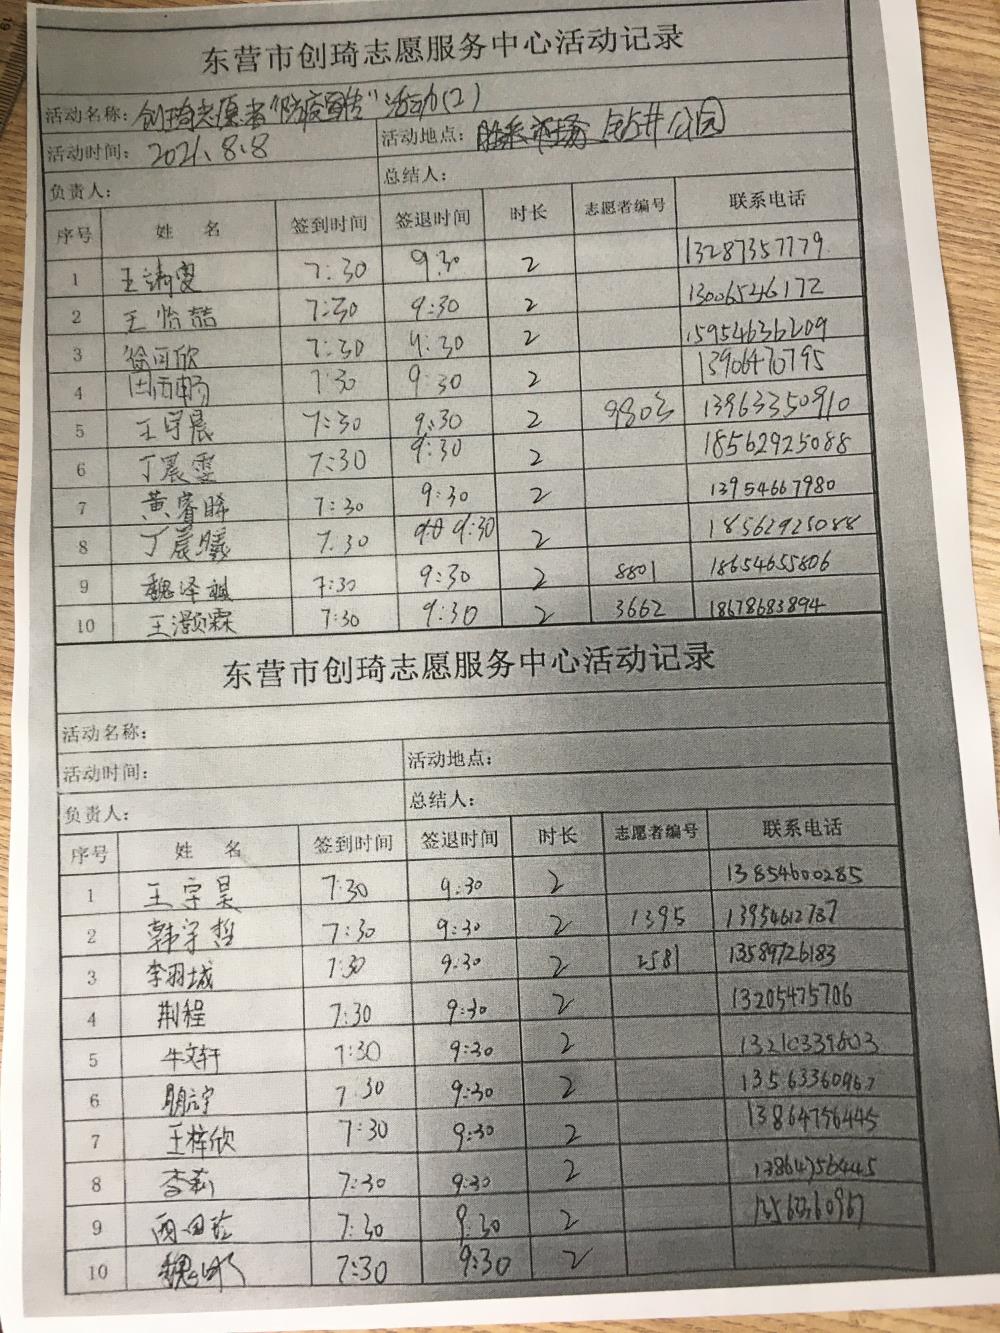 东营市创琦志愿服务中心活动记录
活动名称：创琦志愿者“防疫宣传”活动(2)
活动时间：2021.8.8 活动地点：胜采市场 钻井公园
负责人： 总结人：
序号 姓 名 签到时间 签退时间 时长 志愿者编号 联系电话
1 王 7:30 9:30 2 13287357779
2 王怡喆 7:30 9:30 2 13006546172
3 徐可欣 7:30 9:30 2 15954636209
4 7:30 9:30 2 13906470795
5 王宇晨 7:30 9:30 2 9803 13963350910
6 丁晨雯 7:30 9:30 2 18562925088
7 黄睿晞 7:30 9:30 2 13954667980
8 丁晨曦 7:30 9:30 2 18562925088
9 魏泽祺 7:30 9:30 2 8801 18654655806
10 王灏霖 7:30 9:30 2 3662 18678683894
东营市创琦志愿服务中心活动记录
活动名称：
活动时间： 活动地点：
负责人： 总结人：
序号 姓 名 签到时间 签退时间 时长 志愿者编号 联系电话
1 王宇昊 7:30 9:30 2 13854600285
2 韩宇哲 7:30 9:30 2 1395 13954612787
3 李羽城 7:30 9:30 2 2581 13589726183
4 荆程 7:30 9:30 2 13205475706
5 牛文轩 7:30 9:30 2 13210339803
6 7:30 9:30 2 13563360967
7 王梓欣 7:30 9:30 2 13864756445
8 李莉 7:30 9:30 2 13864756445
9 7:30 9:30 2 13563360967
10 魏 7:30 9:30 2